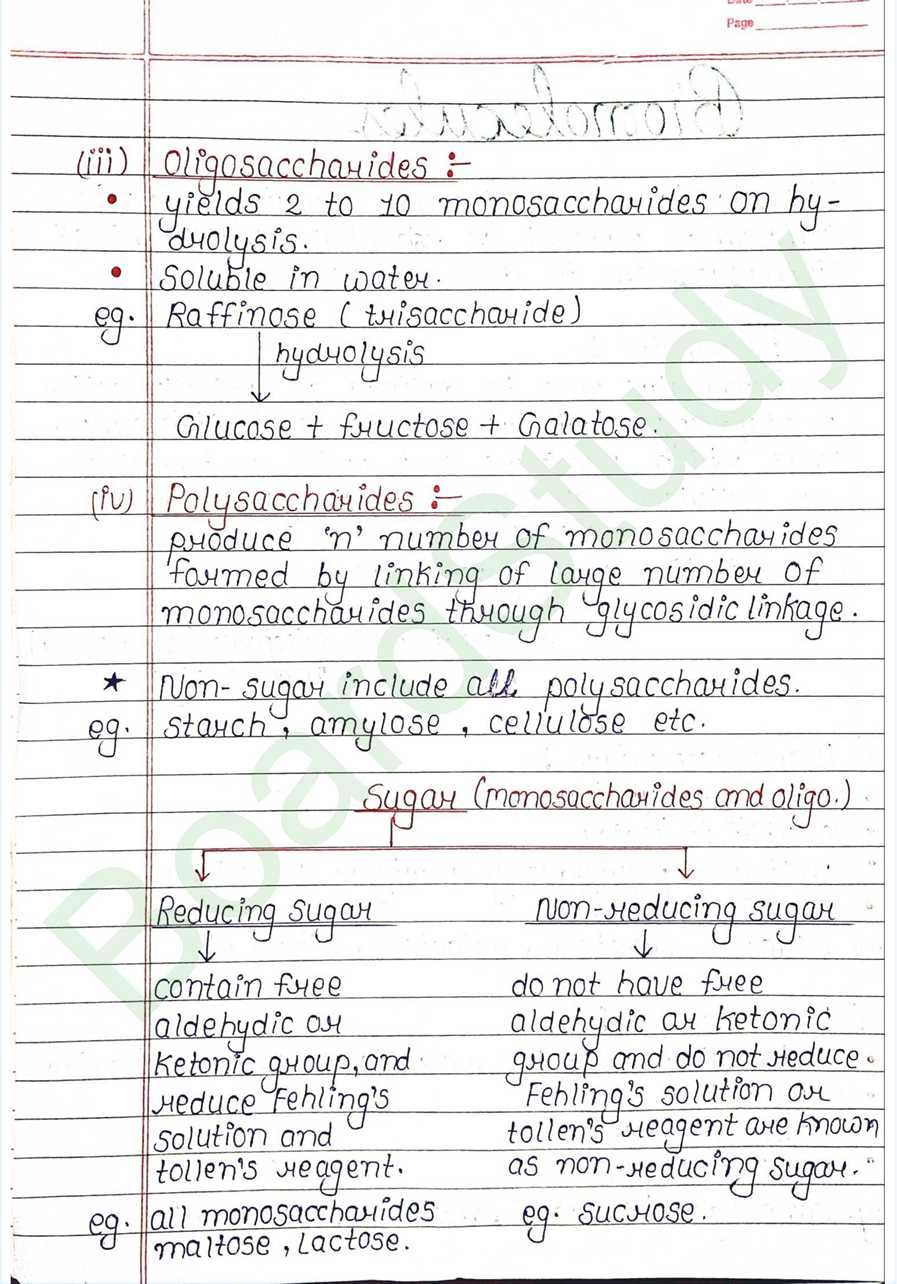 Date
Page
Biomolecules
(iii) Oligosaccharides :-
• yields 2 to 10 monosaccharides on hy-
drolysis.
• Soluble in water.
eg. Raffinose (trisaccharide)
hydrolysis
Glucose + fructose + Galatose.
(iv) Polysaccharides :-
produce 'n' number of monosaccharides
formed by linking of large number of
monosaccharides through glycosidic linkage.
★ Non-sugar include all polysaccharides.
eg. starch, amylose, cellulose etc.
Sugar (monosaccharides and oligo.)
Reducing sugar
contain free
aldehydic or
ketonic group, and
reduce Fehling's
solution and
tollen's reagent.
eg. all monosaccharides
maltose, Lactose.
Non-reducing sugar
do not have free
aldehydic or ketonic
group and do not reduce.
Fehling's solution or
tollen's reagent are known
as non-reducing sugar.
eg. sucrose.
BoardStudy